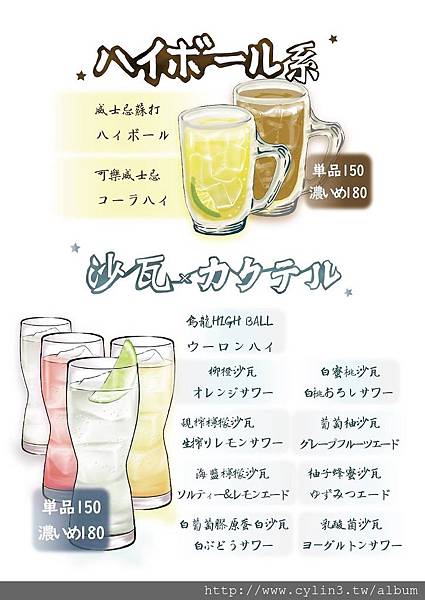 ハイボール系
威士忌蘇打
ハイボール
可樂威士忌
コーラハイ
単品150
濃いめ180
沙瓦×カクテル
烏龍HIGH BALL
ウーロンハイ
柳橙沙瓦
オレンジサワー
白蜜桃沙瓦
白桃おろしサワー
現榨檸檬沙瓦
生搾りレモンサワー
葡萄柚沙瓦
グレープフルーツエード
海鹽檸檬沙瓦
ソルティー&レモンエード
柚子蜂蜜沙瓦
ゆずみつエード
白葡萄膠原蛋白沙瓦
白ぶどうサワー
乳酸菌沙瓦
ヨーグルトンサワー
単品150
濃いめ180
http://www.cylin3.tw/album